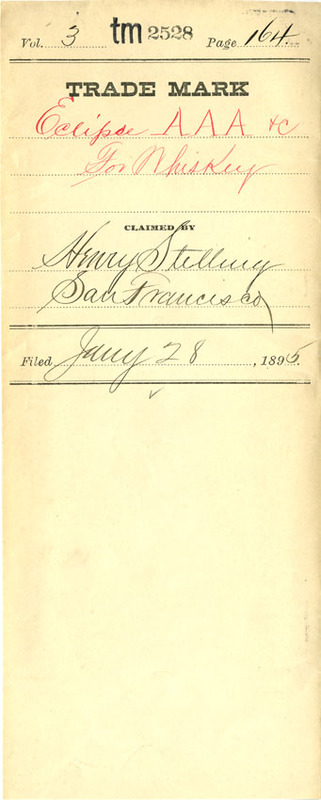 Vol. 3 tm 2528 Page 164
TRADE MARK
Eclipse AAA &c
For Whiskey
CLAIMED BY
Henry Stelling
San Francisco
Filed Jany 28, 1895.